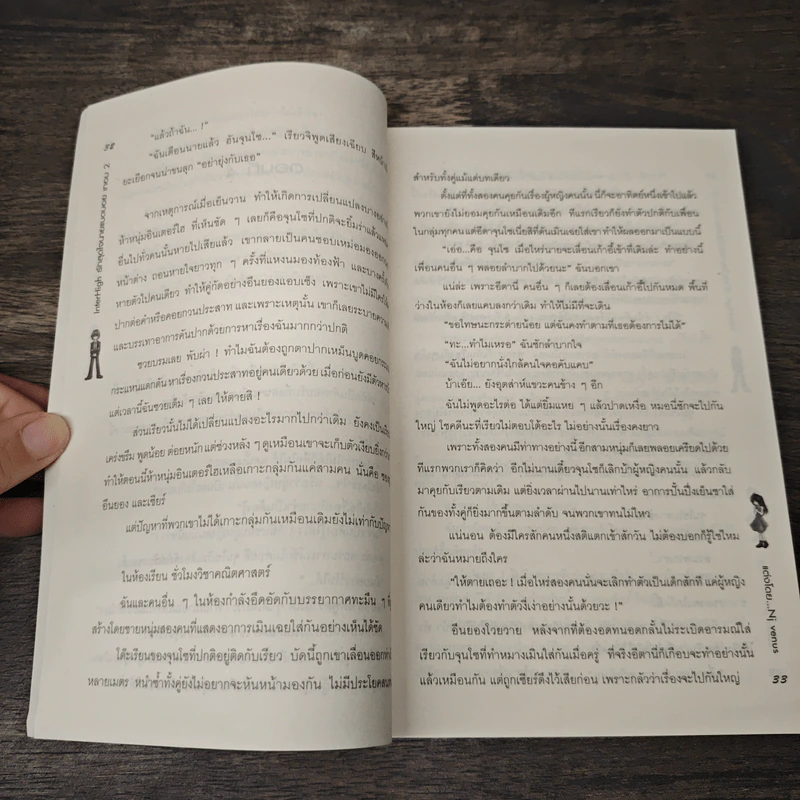 32
"แล้วถ้าฉัน... !"
"ฉันเตือนนายแล้ว ฮันจุนโซ..." เรียวจิพูดเสียงเฉียบ
อะเยือกจนน่าขนลุก "อย่ายุ่งกับเธอ"
จากเหตุการณ์เมื่อเย็นวาน ทำให้เกิดการเปลี่ยนแปลงบางอย่าง
ห้าหนุ่มอินเตอร์ไฮ ที่เห็นชัด ๆ เลยก็คือจุนโซที่ปกติจะยิ้มร่าแล้ว
อื่นไปทั่วคนนั้นหายไปเสียแล้ว เขากลายเป็นคนชอบเหม่อมองออก
หน้าต่าง ถอนหายใจยาวทุก ๆ ครั้งที่แหงนมองท้องฟ้า และบางครั้ง
หายตัวไปคนเดียว ทำให้คู่กัดอย่างอึนยองแอบเซ็ง เพราะเขาไม่มี
ปากต่อคำหรือคอยกวนประสาท และเพราะเหตุนั้น เขาก็เลยระบาย
และบรรเทาอาการคันปากด้วยการหาเรื่องฉันมากกว่าปกติ
ซวยบรมเลย พับผ่า ! ทำไมฉันต้องถูกตาปากเหม็นบูดคอย
กระแหนะแดกดัน หาเรื่องกวนประสาทอยู่คนเดียวด้วย เมื่อก่อนยังมีตัว
แต่เวลานี้ฉันซวยเต็ม ๆ เลย ให้ตายสิ !
ส่วนเรียวนั้นไม่ได้เปลี่ยนแปลงอะไรมากไปกว่าเดิม ยังคงเป็น
เคร่งขรึม พูดน้อย ต่อยหนัก แต่ช่วงหลัง ๆ ดูเหมือนเขาจะเก็บตัวเงียบยิ่งกว่า
ทำให้ตอนนี้ห้าหนุ่มอินเตอร์ไฮเหลือเกาะกลุ่มกันแค่สามคน นั่นคือ
อึนยอง และเซียร์
แต่ปัญหาที่พวกเขาไม่ได้เกาะกลุ่มกันเหมือนเดิมยังไม่เท่ากับปัญหา
ในห้องเรียน ชั่วโมงวิชาคณิตศาสตร์
ฉันและคนอื่น ๆ ในห้องกำลังอึดอัดกับบรรยากาศทะมึน ๆ
สร้างโดยชายหนุ่มสองคนที่แสดงอาการเมินเฉยใส่กันอย่างเห็นได้ชัด
โต๊ะเรียนของจุนโซที่ปกติอยู่ติดกับเรียว บัดนี้ถูกเขาเลื่อนออก
หลายเมตร หนำซ้ำทั้งคู่ยังไม่อยากจะหันหน้ามองกัน ไม่มีประโยค
InterHigh รักสุดใจนายแบบจอมซ่า ตอน 2
สำหรับทั้งคู่แม้แต่บทเดียว
ตั้งแต่ที่ทั้งสองคนคุยกันเรื่องผู้หญิงคนนั้น นี่ก็จะอาทิตย์หนึ่งเข้าไปแล้ว
พวกเขายังไม่ยอมคุยกันเหมือนเดิมอีก ที่แรกเรียวก็ยังทำตัวปกติกับเพื่อน
ในกลุ่มทุกคน แต่อีตาจุนโซเนี่ยสิที่ดันเมินเฉยใส่เขา ทำให้ผลออกมาเป็นแบบนี้
"เอ่อ...คือ จุนโซ เมื่อไหร่นายจะเลื่อนเก้าอี้เข้าที่เดิมล่ะ ทำอย่างนี้
เพื่อนคนอื่น ๆ พลอยลำบากไปด้วยนะ" ฉันบอกเขา
แน่ล่ะ เพราะอีตานี่ คนอื่น ๆ ก็เลยต้องเลื่อนเก้าอี้ไปกันหมด พื้นที่
ว่างในห้องก็เลยแคบลงกว่าเดิม ทำให้ไม่มีที่จะเดิน
"ขอโทษนะกระต่ายน้อย แต่ฉันคงทำตามที่เธอต้องการไม่ได้"
"ทะ...ทำไมเหรอ" ฉันชักลำบากใจ
"ฉันไม่อยากนั่งใกล้คนใจคอคับแคบ"
บ้าเอ๊ย... ยังอุตส่าห์แขวะคนข้าง ๆ อีก
ฉันไม่พูดอะไรต่อ ได้แต่ยิ้มแหย ๆ แล้วปาดเหงื่อ หมอนี่ชักจะไปกัน
ใหญ่ โชคดีนะที่เรียวไม่ตอบโต้อะไร ไม่อย่างนั้นเรื่องคงยาว
เพราะทั้งสองคนมีท่าทางอย่างนี้ อีกสามหนุ่มก็เลยพลอยเครียดไปด้วย
ทีแรกพวกเราก็คิดว่า อีกไม่นานเดี๋ยวจุนโซก็เลิกบ้าผู้หญิงคนนั้น แล้วกลับ
มาคุยกับเรียวตามเดิม แต่ยิ่งเวลาผ่านไปนานเท่าไหร่ อาการปั้นปึ่งเย็นชาใส่
กันของทั้งคู่ก็ยิ่งมากขึ้นตามลำดับ จนพวกเขาทนไม่ไหว
แน่นอน ต้องมีใครสักคนหนึ่งสติแตกเข้าสักวัน ไม่ต้องบอกก็รู้ใช่ไหม
ล่ะว่าฉันหมายถึงใคร
"ให้ตายเถอะ ! เมื่อไหร่สองคนนั่นจะเลิกทำตัวเป็นเด็กสักที แค่ผู้หญิง
คนเดียวทำไมต้องทำตัวงี่เง่าอย่างนั้นด้วยวะ !"
อึนยองโวยวาย หลังจากที่ต้องอดทนอดกลั้นไม่ระเบิดอารมณ์ใส่
เรียวกับจุนโซที่ทำหมางเมินใส่กันเมื่อครู่ ที่จริงอีตานี่ก็เกือบจะทำอย่างนั้น
แล้วเหมือนกัน แต่ถูกเซียร์ดึงไว้เสียก่อน เพราะกลัวว่าเรื่องจะไปกันใหญ่
แต่งโดย...Nj venus
33